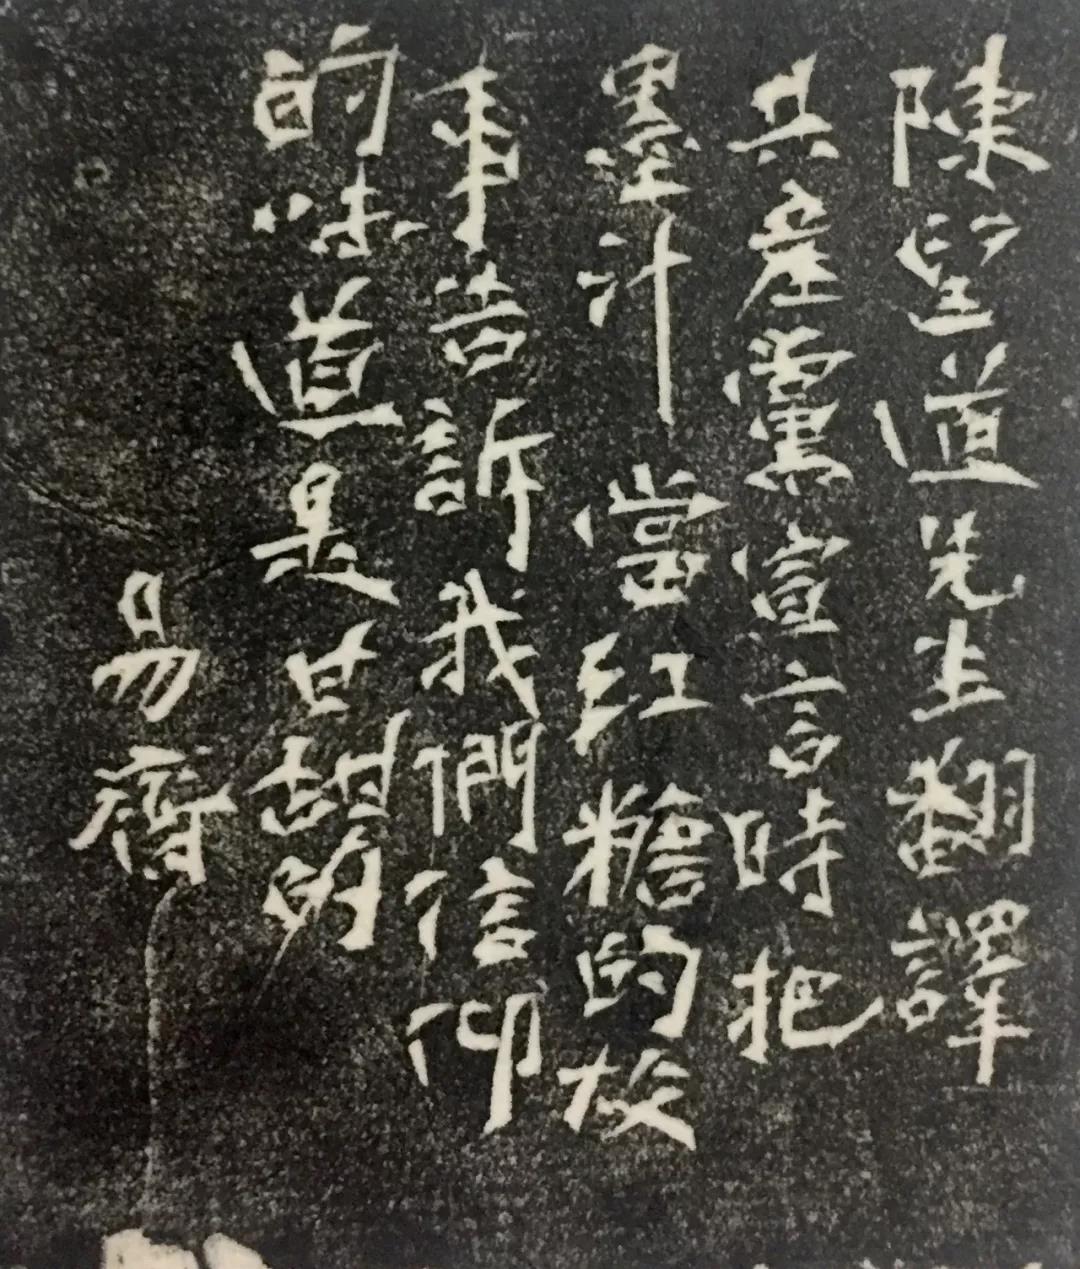 陳望道先生翻譯
共產黨宣言時把
墨汁當紅糖的故
事告訴我們信仰
的味道是甘甜的
易齋